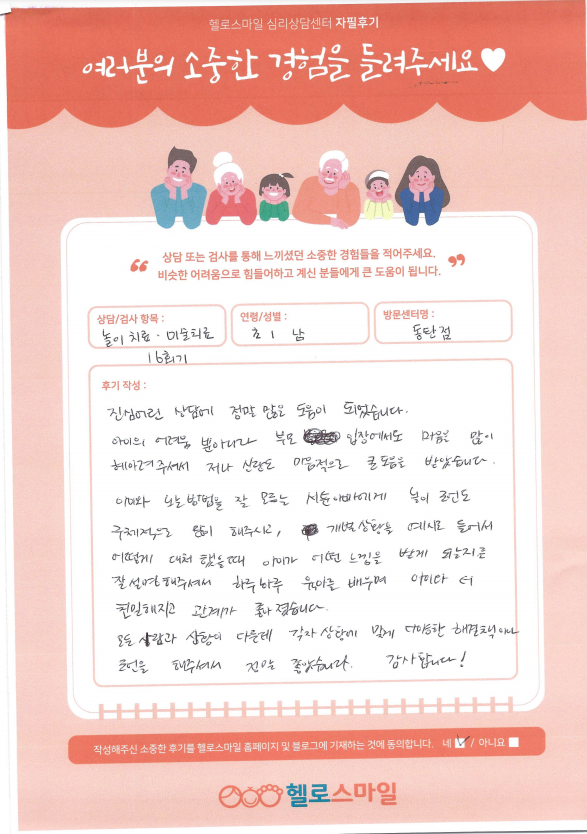 헬로스마일 심리상담센터 자필후기
여러분의 소중한 경험을 들려주세요
상담 또는 검사를 통해 느끼셨던 소중한 경험들을 적어주세요.
비슷한 어려움으로 힘들어하고 계신 분들에게 큰 도움이 됩니다.
상담/검사 항목 :
놀이치료 · 미술치료
16회기
연령/성별 :
초1 남
방문센터명 :
동탄점
후기 작성 :
진심어린 상담에 정말 많은 도움이 되었습니다.
아이의 어려움 뿐아니라 부모 입장에서도 마음을 많이
헤아려주셔서 저나 신랑도 마음적으로 큰 도움을 받았습니다.
아이와 노는방법을 잘 모르는 아빠에게 놀이 조언도
구체적으로 많이 해주시고, 개별상황을 예시로 들어서
어떻게 대처 했을때 아이가 어떤 느낌을 받게 되는지를
잘설명해주셔서 하루하루 육아를 배우며 아이와 더
친밀해지고 관계가 좋아졌습니다.
모든 사람과 상황이 다른데 각자 상황에 맞게 다양한 해결책이나
조언을 해주셔서 정말 좋았습니다. 감사합니다!
작성해주신 소중한 후기를 헬로스마일 홈페이지 및 블로그에 기재하는 것에 동의합니다. 네 / 아니요
헬로스마일